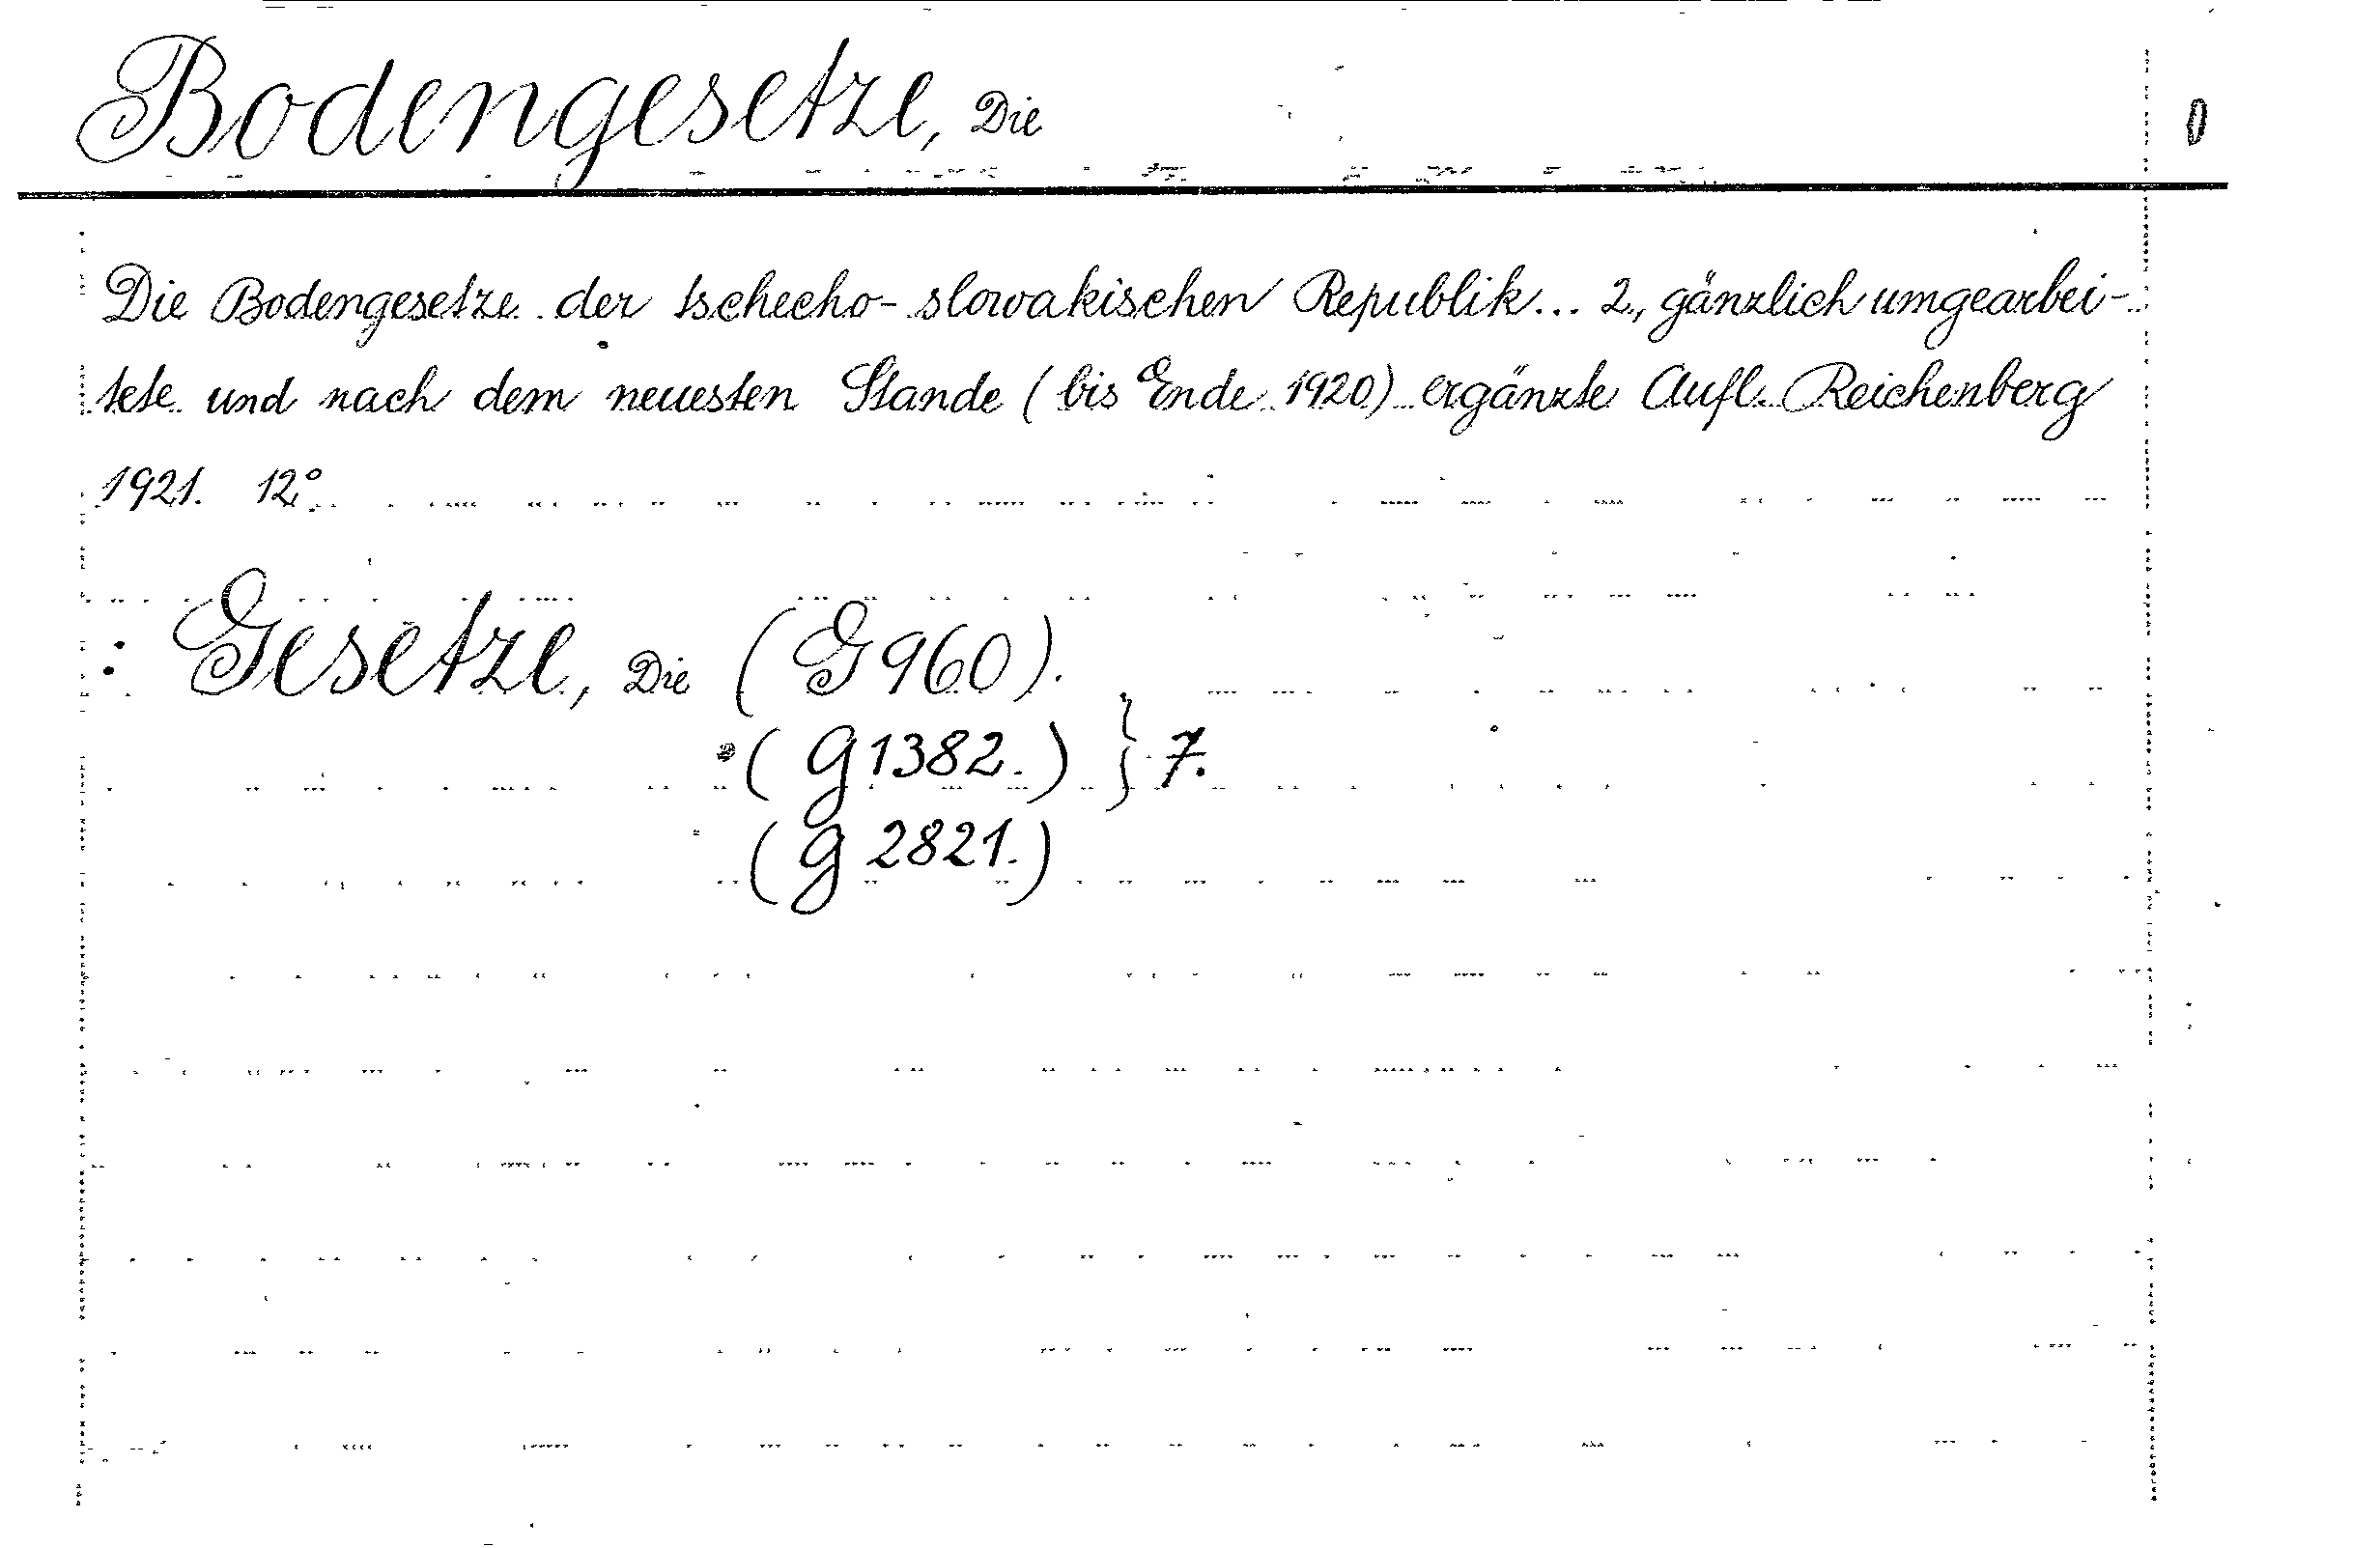 Bodengesetze, Die
Die Bodengesetze der tschecho-slowakischen Republik... 2., gänzlich umgearbei-
tete und nach dem neuesten Stande (bis Ende 1920) ergänzte Aufl. Reichenberg
1921. 12°.
: Gesetze, Die (G960).
(g1382.) } 7.
(g 2821.)